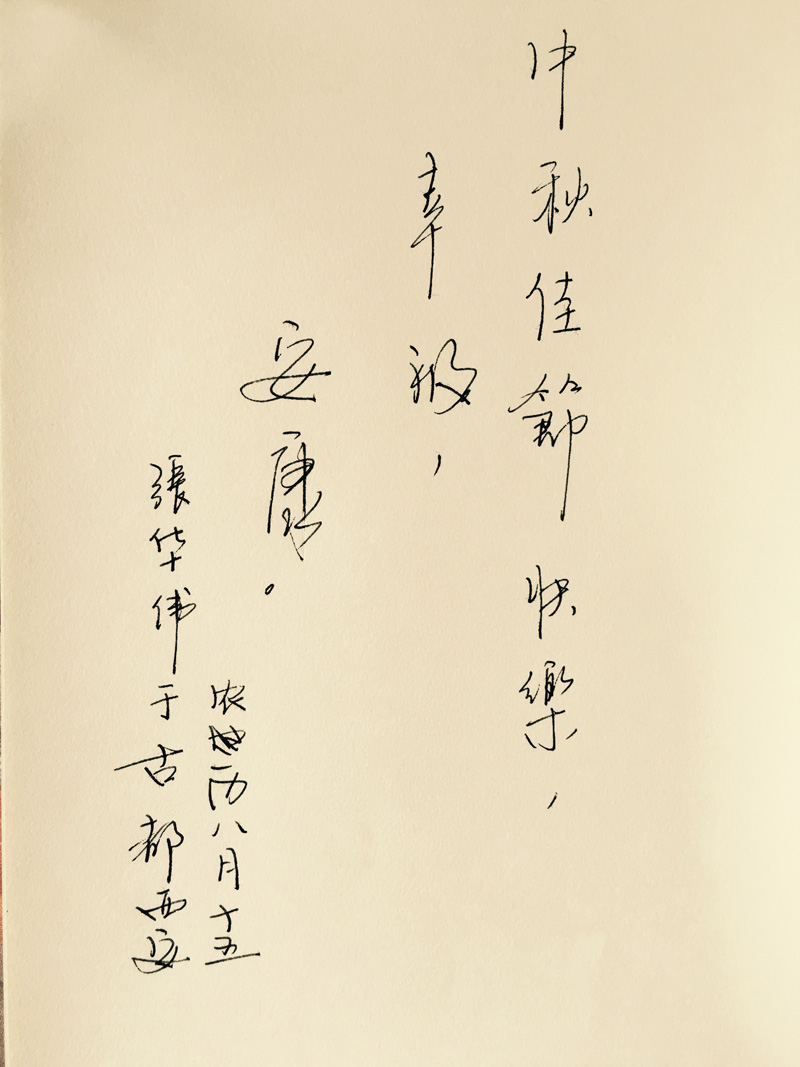 中秋佳節快樂，
幸福，
安康。
农历八月十五
張华伟于古都西安